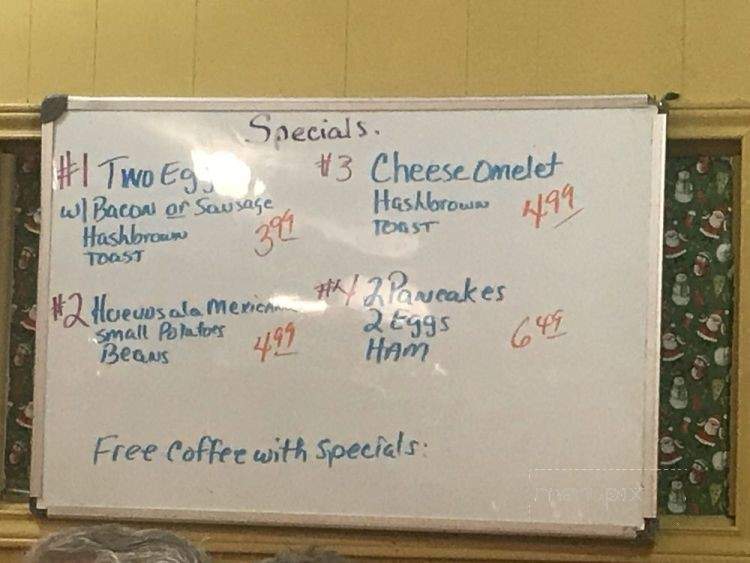 Specials.
#1 Two
w/ Bacon or Sausage
Hashbrown
TOAST
3.99
#2 Huevos ala
small Potatoes
Beans
4.99
#3 Cheese Omelet
Hashbrown
TOAST
4.99
#4 2 Pancakes
2 Eggs
HAM
6.49
Free Coffee with specials:
menupix